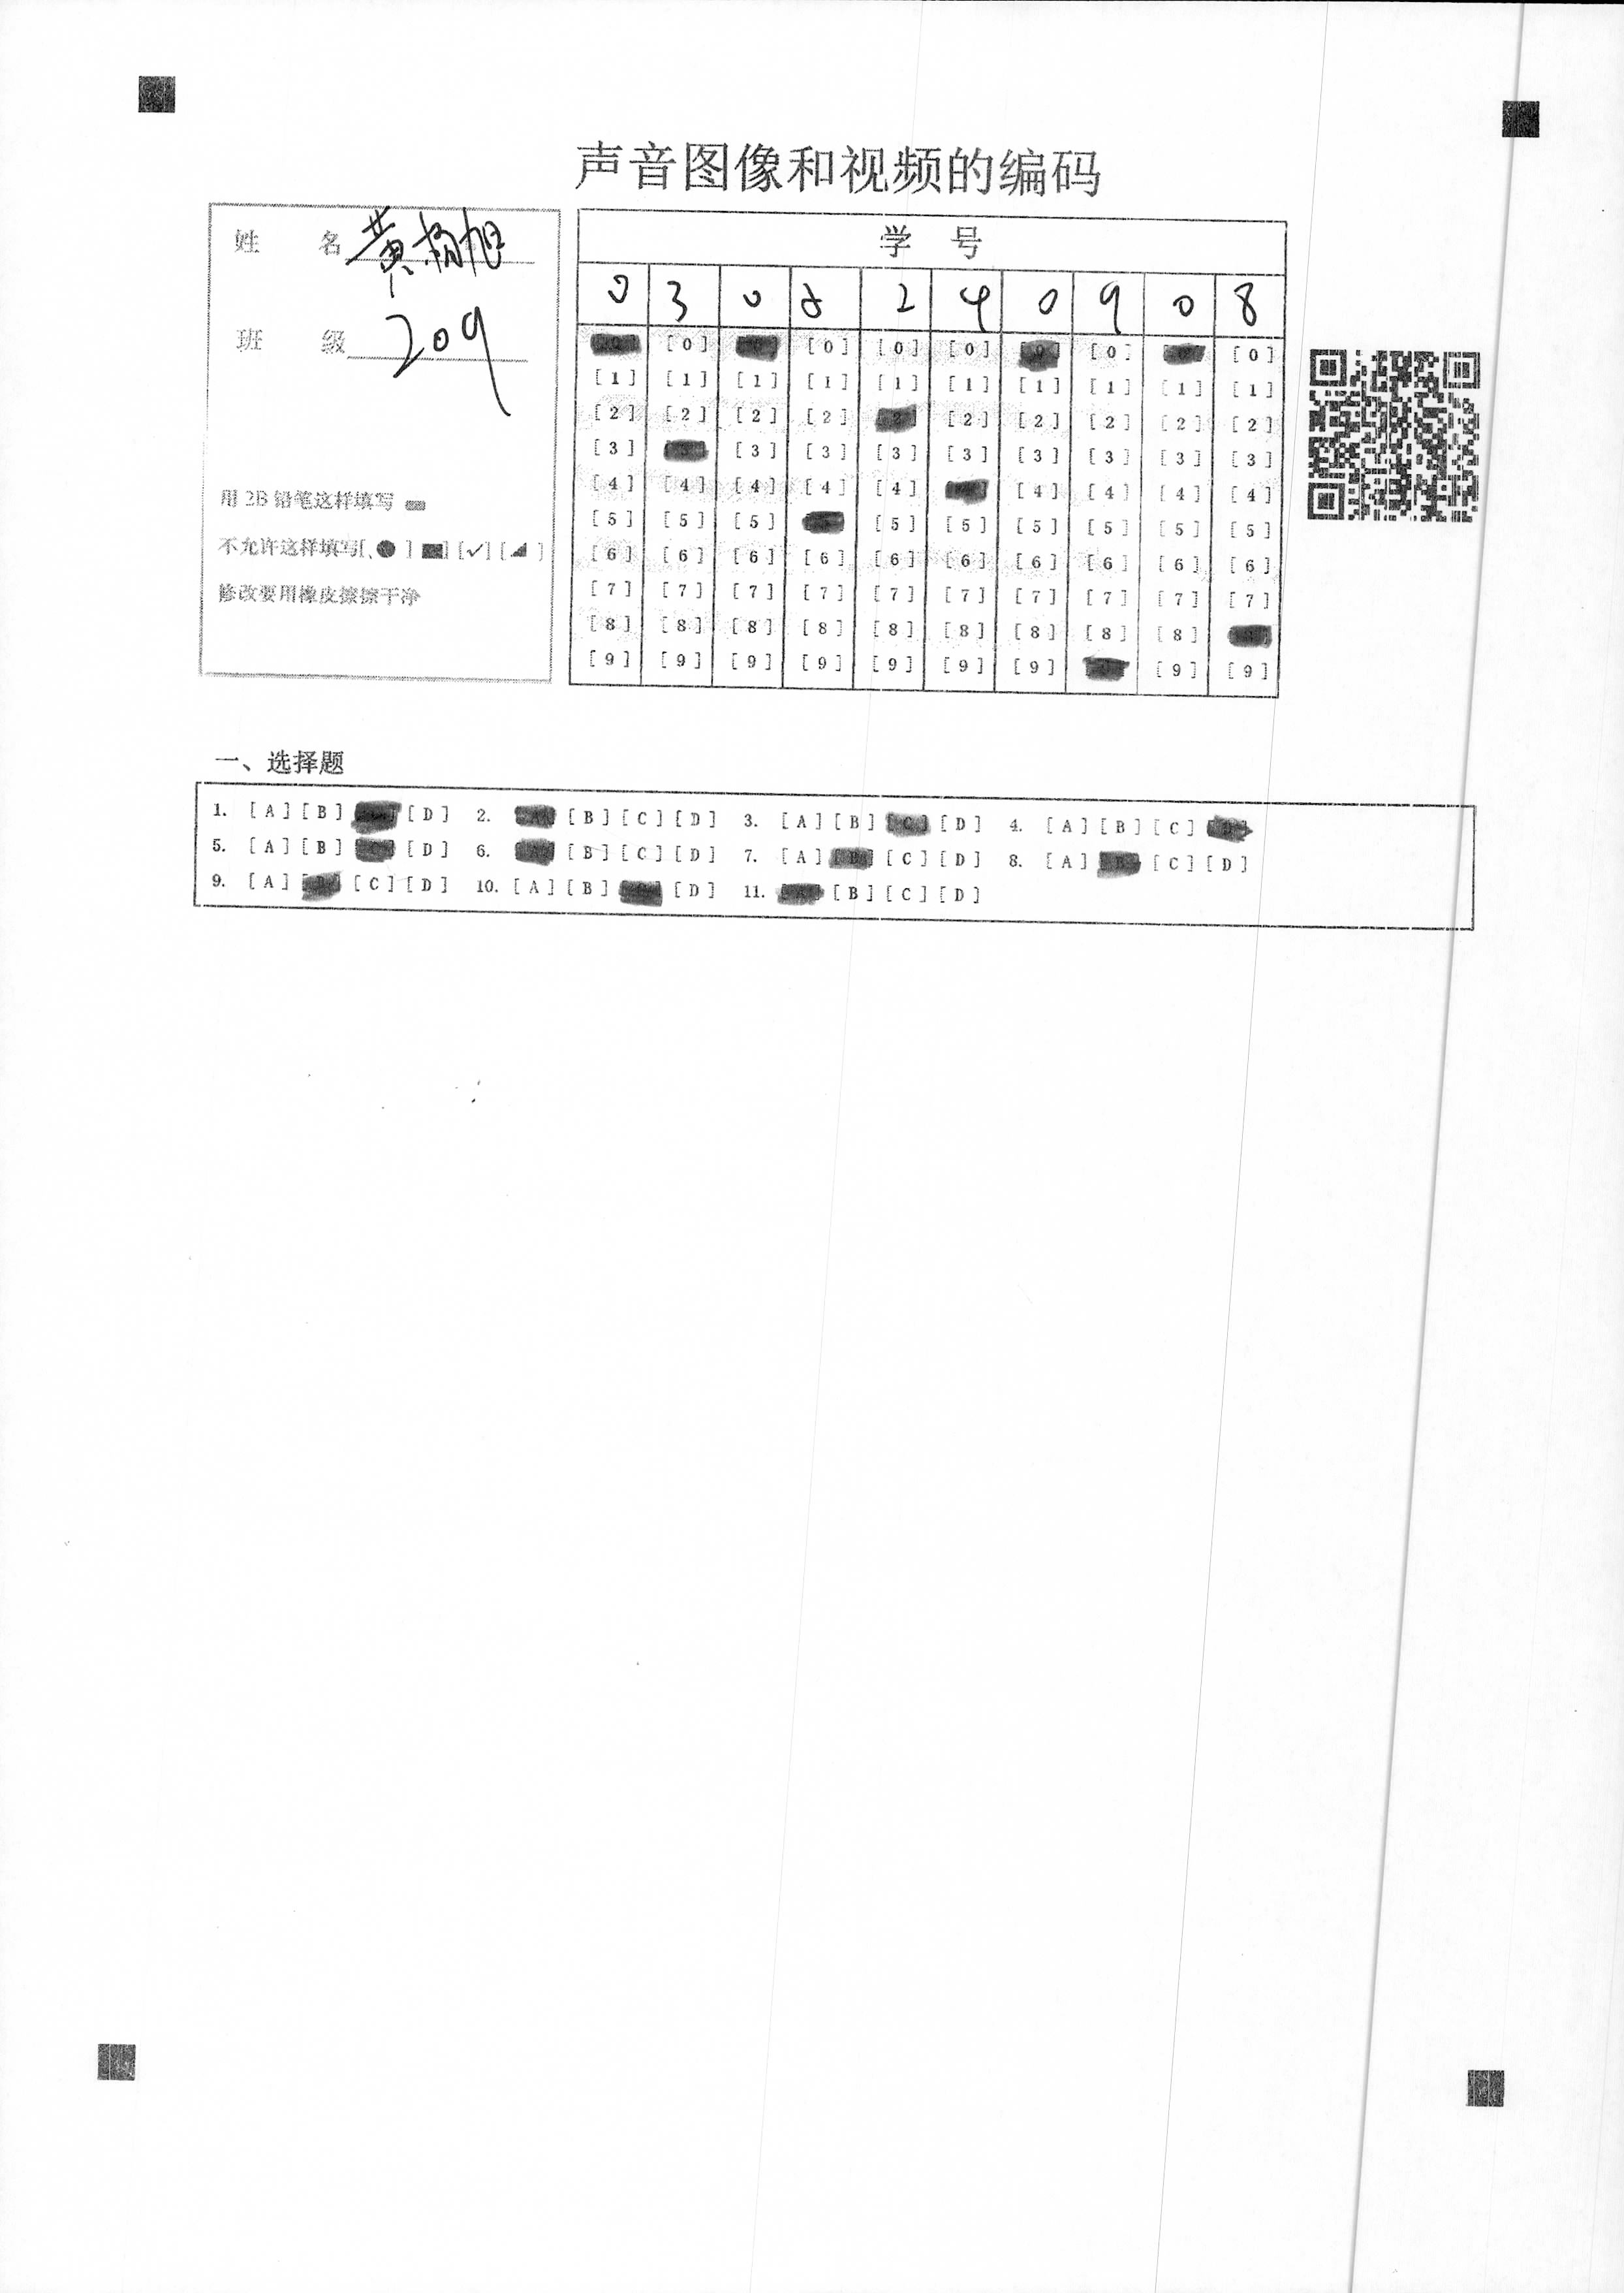 声音图像和视频的编码
姓 名 黄杨旭
班 级 209
用 2B 铅笔这样填写
不允许这样填写[、● ] ■] [✓] [◢ ]
修改要用橡皮擦擦干净
学 号
0 3 0 5 2 4 0 9 0 8
[0] [0] [0] [0] [0] [0]
[1] [1] [1] [1] [1] [1] [1] [1] [1] [1]
[2] [2] [2] [2] [2] [2] [2] [2] [2] [2]
[3] [3] [3] [3] [3] [3] [3] [3] [3]
[4] [4] [4] [4] [4] [4] [4] [4] [4]
[5] [5] [5] [5] [5] [5] [5] [5] [5]
[6] [6] [6] [6] [6] [6] [6] [6] [6] [6]
[7] [7] [7] [7] [7] [7] [7] [7] [7] [7]
[8] [8] [8] [8] [8] [8] [8] [8] [8]
[9] [9] [9] [9] [9] [9] [9] [9] [9]
一、选择题
1. [A] [B] [D] 2. [B] [C] [D] 3. [A] [B] [C] [D] 4. [A] [B] [C]
5. [A] [B] [C] [D] 6. [B] [C] [D] 7. [A] [B] [C] [D] 8. [A] [B] [C] [D]
9. [A] [C] [D] 10. [A] [B] [D] 11. [B] [C] [D]